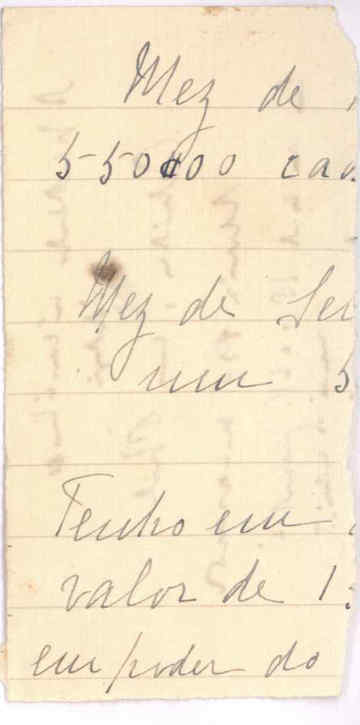 Mez de
550$000 cad
Mez de Se
um 5
Tenho em
valor de 1:
em poder do